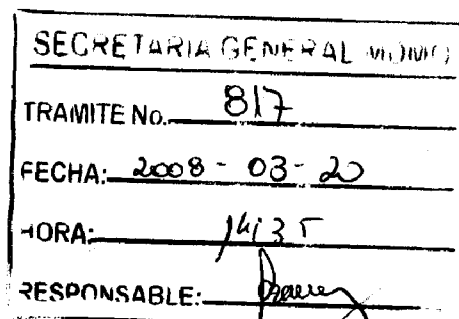 SECRETARIA GENERAL
TRAMITE No. 817
FECHA: 2008-03-20
HORA: 14:35
RESPONSABLE: